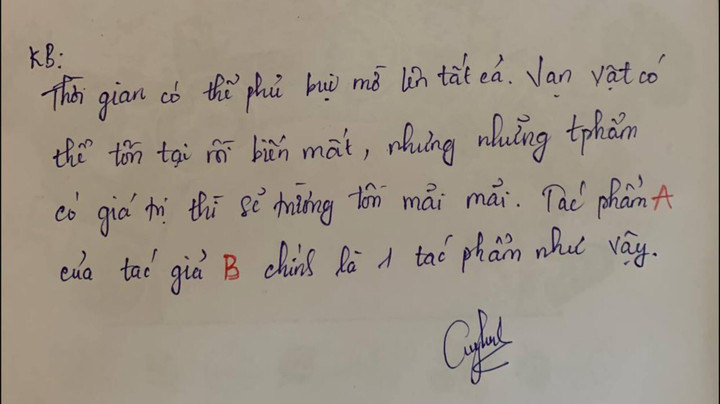 KB:
Thời gian có thể phủ bụi mờ lên tất cả. Vạn vật có
thể tồn tại rồi biến mất, nhưng những tphẩm
có giá trị thì sẽ trường tồn mãi mãi. Tác phẩm A
của tác giả B chính là 1 tác phẩm như vậy.